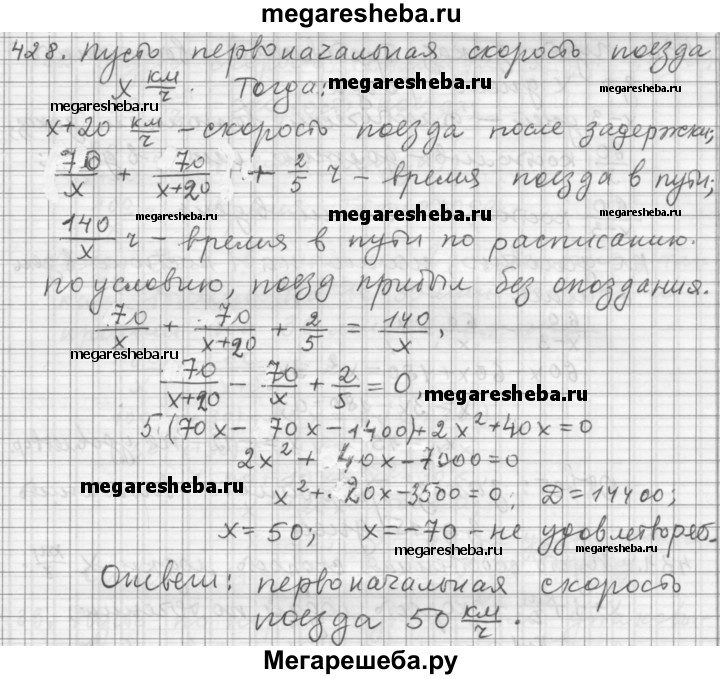 megaresheba.ru
428. Пусть первоначальная скорость поезда
x км/ч. Тогда: megaresheba.ru
megaresheba.ru
x+20 км/ч – скорость поезда после задержки;
70/x + 70/(x+20) + 2/5 ч – время поезда в пути;
megaresheba.ru megaresheba.ru megaresheba.ru
140/x ч – время в пути по расписанию.
По условию, поезд прибыл без опоздания.
70/x + 70/(x+20) + 2/5 = 140/x,
megaresheba.ru
70/(x+20) – 70/x + 2/5 = 0, megaresheba.ru
5(70x – 70x – 1400) + 2x² + 40x = 0
2x² + 40x – 7000 = 0
megaresheba.ru
x² + 20x – 3500 = 0; D = 14400;
x = 50; x = –70 – не удовлетворяет.
megaresheba.ru
megaresheba.ru
Ответ: первоначальная скорость
поезда 50 км/ч.
Мегарешеба.ру